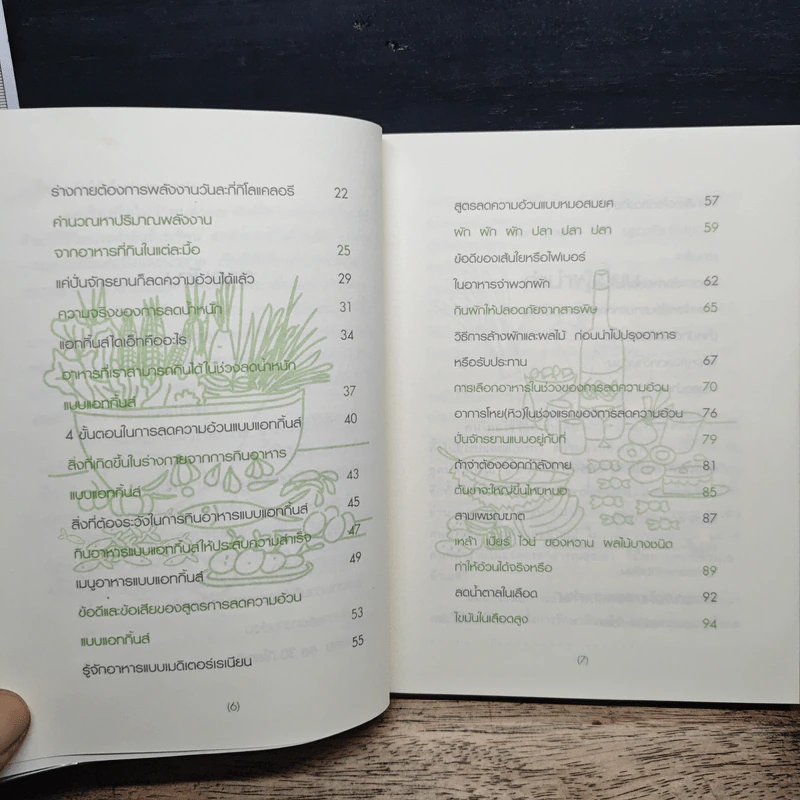 ร่างกายต้องการพลังงานวันละกี่กิโลแคลอรี 22
คำนวณหาปริมาณพลังงาน
จากอาหารที่กินในแต่ละมื้อ 25
แค่ปั่นจักรยานก็ลดความอ้วนได้แล้ว 29
ความจริงของการลดน้ำหนัก 31
แอทกิ้นส์ไดเอ็ทคืออะไร 34
อาหารที่เราสามารถกินได้ในช่วงลดน้ำหนัก
แบบแอทกิ้นส์ 37
4 ขั้นตอนในการลดความอ้วนแบบแอทกิ้นส์ 40
สิ่งที่เกิดขึ้นในร่างกายจากการกินอาหาร
แบบแอทกิ้นส์ 43
สิ่งที่ต้องระวังในการกินอาหารแบบแอทกิ้นส์ 45
กินอาหารแบบแอทกิ้นส์ให้ประสบความสำเร็จ 47
เมนูอาหารแบบแอทกิ้นส์ 49
ข้อดีและข้อเสียของสูตรการลดความอ้วน
แบบแอทกิ้นส์ 53
รู้จักอาหารแบบเมดิเตอร์เรเนียน 55
(6)
สูตรลดความอ้วนแบบหมอสมยศ 57
ผัก ผัก ผัก ปลา ปลา ปลา 59
ข้อดีของเส้นใยหรือไฟเบอร์
ในอาหารจำพวกผัก 62
กินผักให้ปลอดภัยจากสารพิษ 65
วิธีการล้างผักและผลไม้ ก่อนนำไปปรุงอาหาร
หรือรับประทาน 67
การเลือกอาหารในช่วงของการลดความอ้วน 70
อาการโหย(หิว)ในช่วงแรกของการลดความอ้วน 76
ปั่นจักรยานแบบอยู่กับที่ 79
ถ้าจำต้องออกกำลังกาย 81
ต้นขาจะใหญ่ขึ้นไหมหมอ 85
สามเพชฌฆาต 87
เหล้า เบียร์ ไวน์ ของหวาน ผลไม้บางชนิด
ทำให้อ้วนได้จริงหรือ 89
ลดน้ำตาลในเลือด 92
ไขมันในเลือดสูง 94
(7)